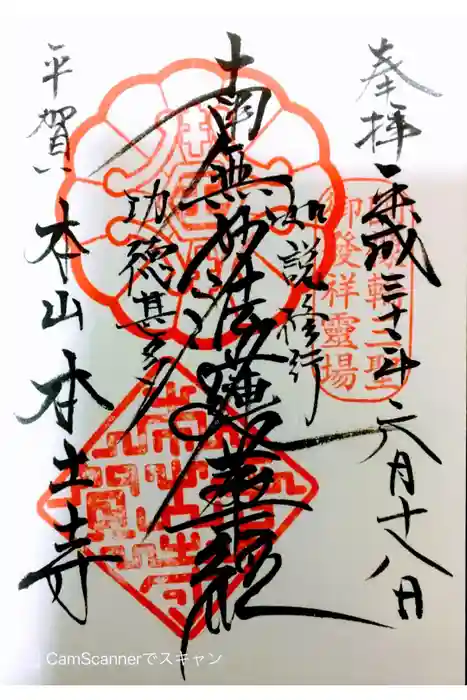 奉拝 平成三十年六月十八日
三聖
御發祥靈場
如説修行
南無妙法蓮華経
功徳甚多
平賀 本山 本土寺
CamScannerでスキャン